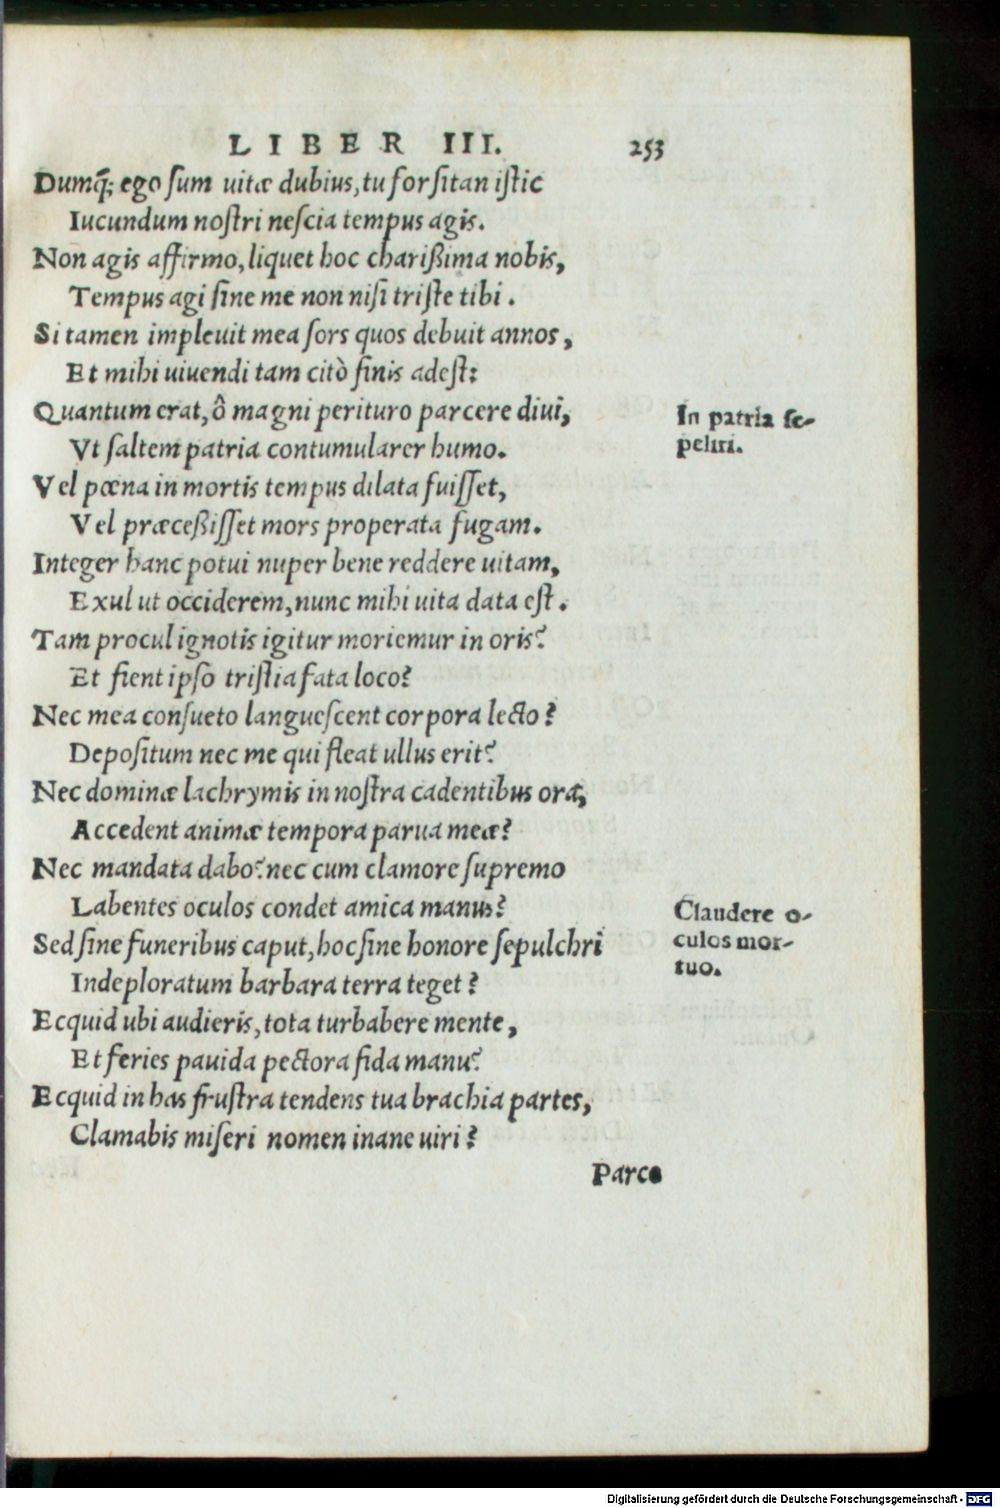 LIBER III. 253
Dumq́; ego ſum uitæ dubius, tu forſitan iſtic
Iucundum noſtri neſcia tempus agis.
Non agis affirmo, liquet hoc charißima nobis,
Tempus agi ſine me non niſi triſte tibi.
Si tamen impleuit mea ſors quos debuit annos,
Et mihi uiuendi tam citò finis adeſt:
Quantum erat, ô magni perituro parcere diui,
In patria ſe-
peliri.
Vt ſaltem patria contumularer humo.
Vel pœna in mortis tempus dilata fuiſſet,
Vel præceßiſſet mors properata fugam.
Integer hanc potui nuper bene reddere uitam,
Exul ut occiderem, nunc mihi uita data eſt.
Tam procul ignotis igitur moriemur in oris?
Et fient ipſo triſtia fata loco?
Nec mea conſueto langueſcent corpora lecto?
Depoſitum nec me qui fleat ullus erit?
Nec dominæ lachrymis in noſtra cadentibus ora,
Accedent animæ tempora parua meæ?
Nec mandata dabo? nec cum clamore ſupremo
Labentes oculos condet amica manus?
Claudere o-
culos mor-
tuo.
Sed ſine funeribus caput, hoc ſine honore ſepulchri
Indeploratum barbara terra teget?
Ecquid ubi audieris, tota turbabere mente,
Et feries pauida pectora fida manu?
Ecquid in has fruſtra tendens tua brachia partes,
Clamabis miſeri nomen inane uiri?
Parce
Digitalisierung gefördert durch die Deutsche Forschungsgemeinschaft - DFG